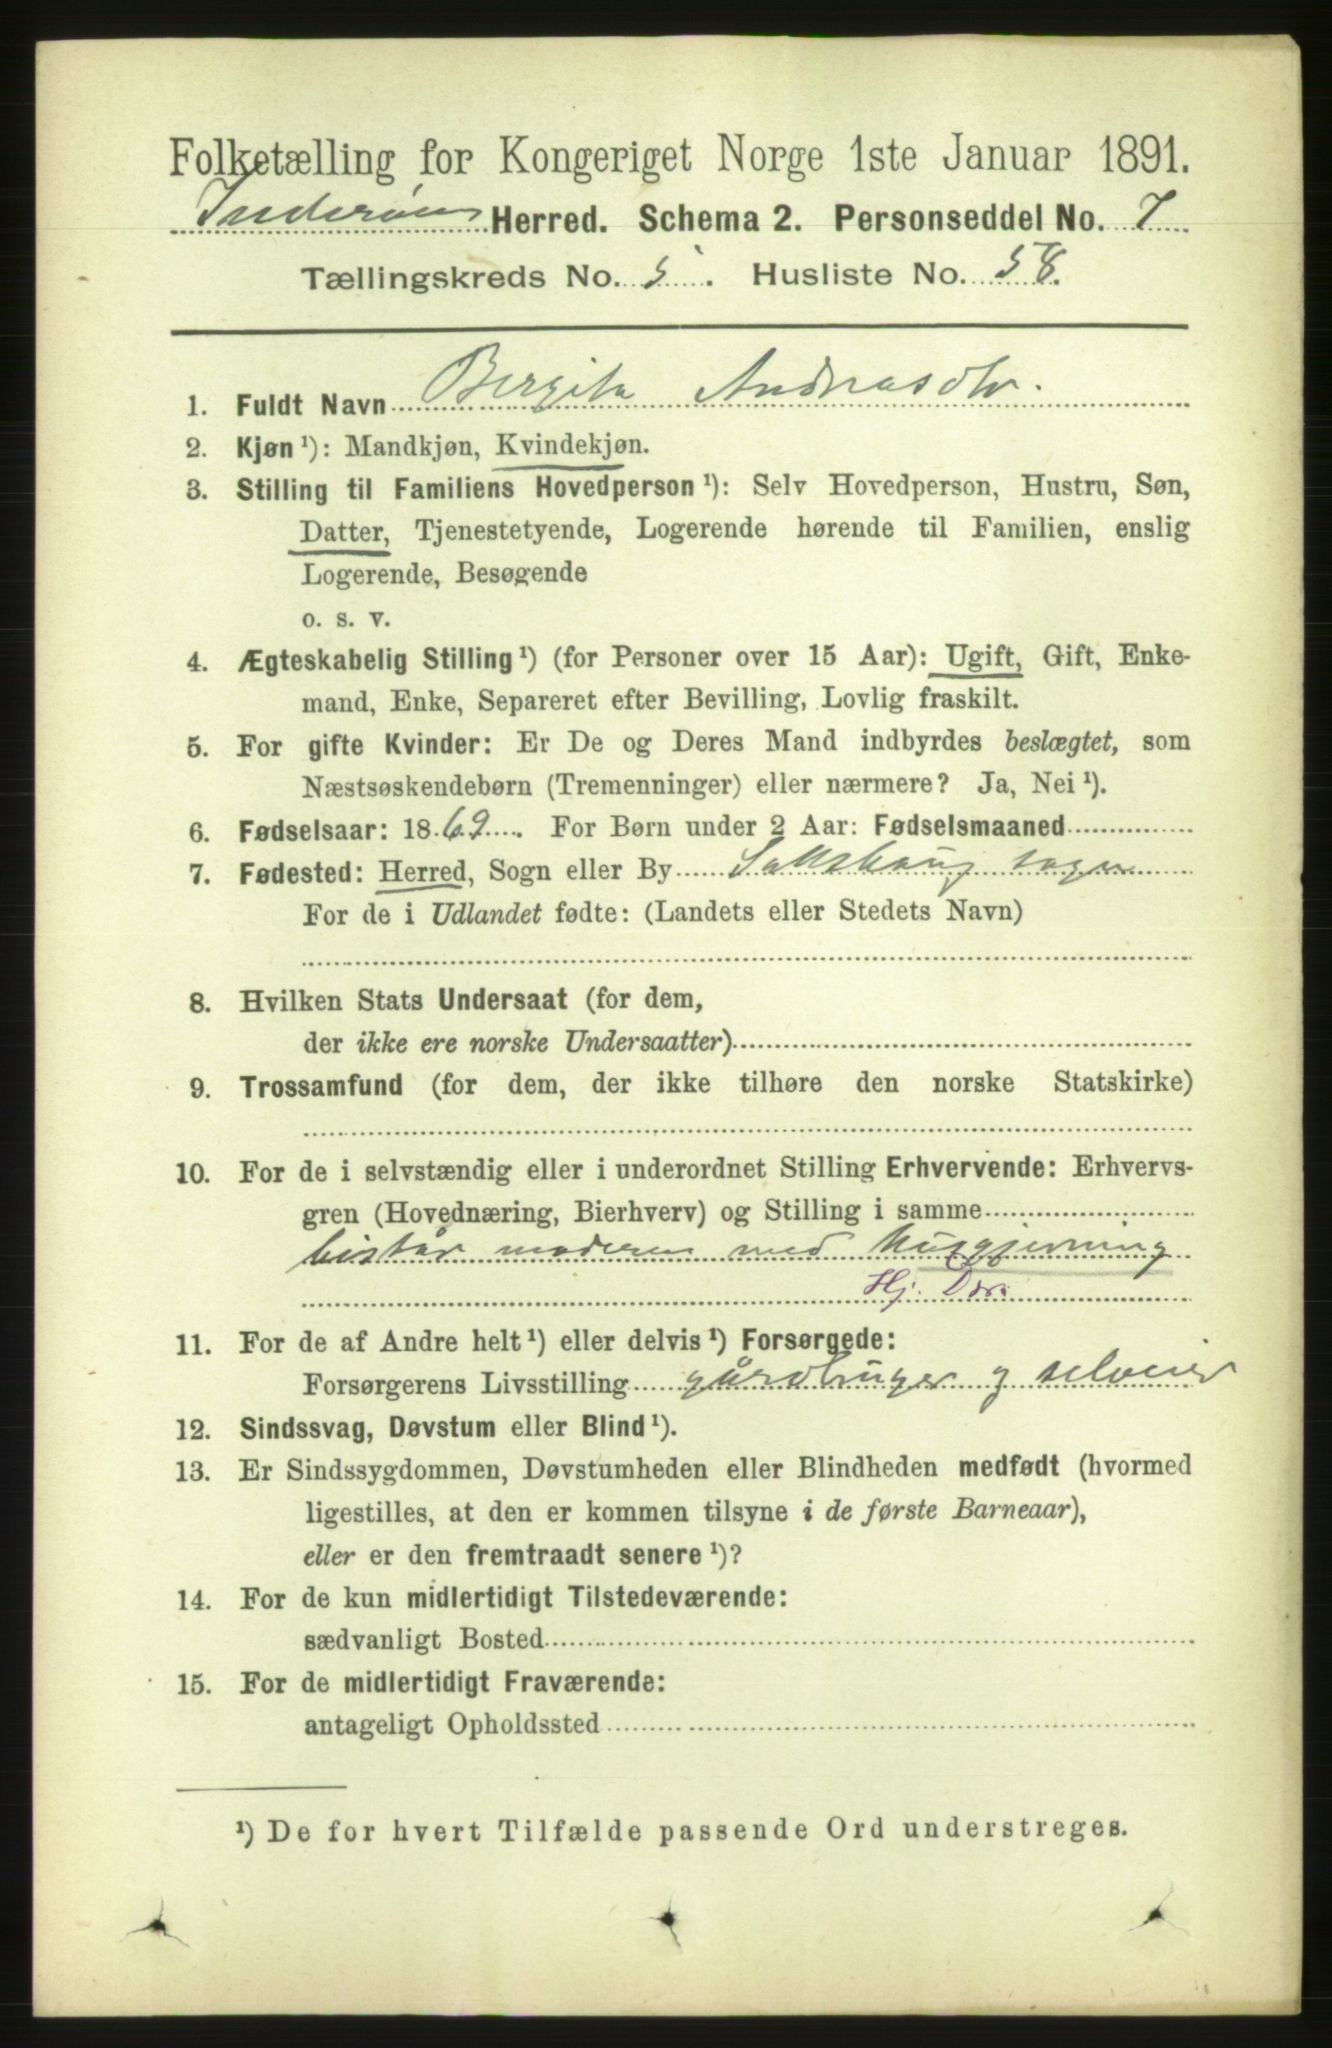 Folketælling for Kongeriget Norge 1ste Januar 1891.
Inderøens Herred. Schema 2. Personseddel No. 7
Tællingskreds No. 5. Husliste No. 58.
1. Fuldt Navn Bergita Andreasdtr.
2. Kjøn ¹): Mandkjøn, Kvindekjøn.
3. Stilling til Familiens Hovedperson ¹): Selv Hovedperson, Hustru, Søn,
Datter, Tjenestetyende, Logerende hørende til Familien, enslig
Logerende, Besøgende
o. s. v.
4. Ægteskabelig Stilling ¹) (for Personer over 15 Aar): Ugift, Gift, Enke-
mand, Enke, Separeret efter Bevilling, Lovlig fraskilt.
5. For gifte Kvinder: Er De og Deres Mand indbyrdes beslægtet, som
Næstsøskendebørn (Tremenninger) eller nærmere? Ja, Nei ¹).
6. Fødselsaar: 1869. For Børn under 2 Aar: Fødselsmaaned
7. Fødested: Herred, Sogn eller By Sakshaug sogn
For de i Udlandet fødte: (Landets eller Stedets Navn)
8. Hvilken Stats Undersaat (for dem,
der ikke ere norske Undersaatter)
9. Trossamfund (for dem, der ikke tilhøre den norske Statskirke)
10. For de i selvstændig eller i underordnet Stilling Erhvervende: Erhvervs-
gren (Hovednæring, Bierhverv) og Stilling i samme
bistår moderen med husgjerning
Hj. Dtr.
11. For de af Andre helt ¹) eller delvis ¹) Forsørgede:
Forsørgerens Livsstilling gårdbruger og selveier
12. Sindssvag, Døvstum eller Blind ¹).
13. Er Sindssygdommen, Døvstumheden eller Blindheden medfødt (hvormed
ligestilles, at den er kommen tilsyne i de første Barneaar),
eller er den fremtraadt senere ¹)?
14. For de kun midlertidigt Tilstedeværende:
sædvanligt Bosted
15. For de midlertidigt Fraværende:
antageligt Opholdssted
¹) De for hvert Tilfælde passende Ord understreges.